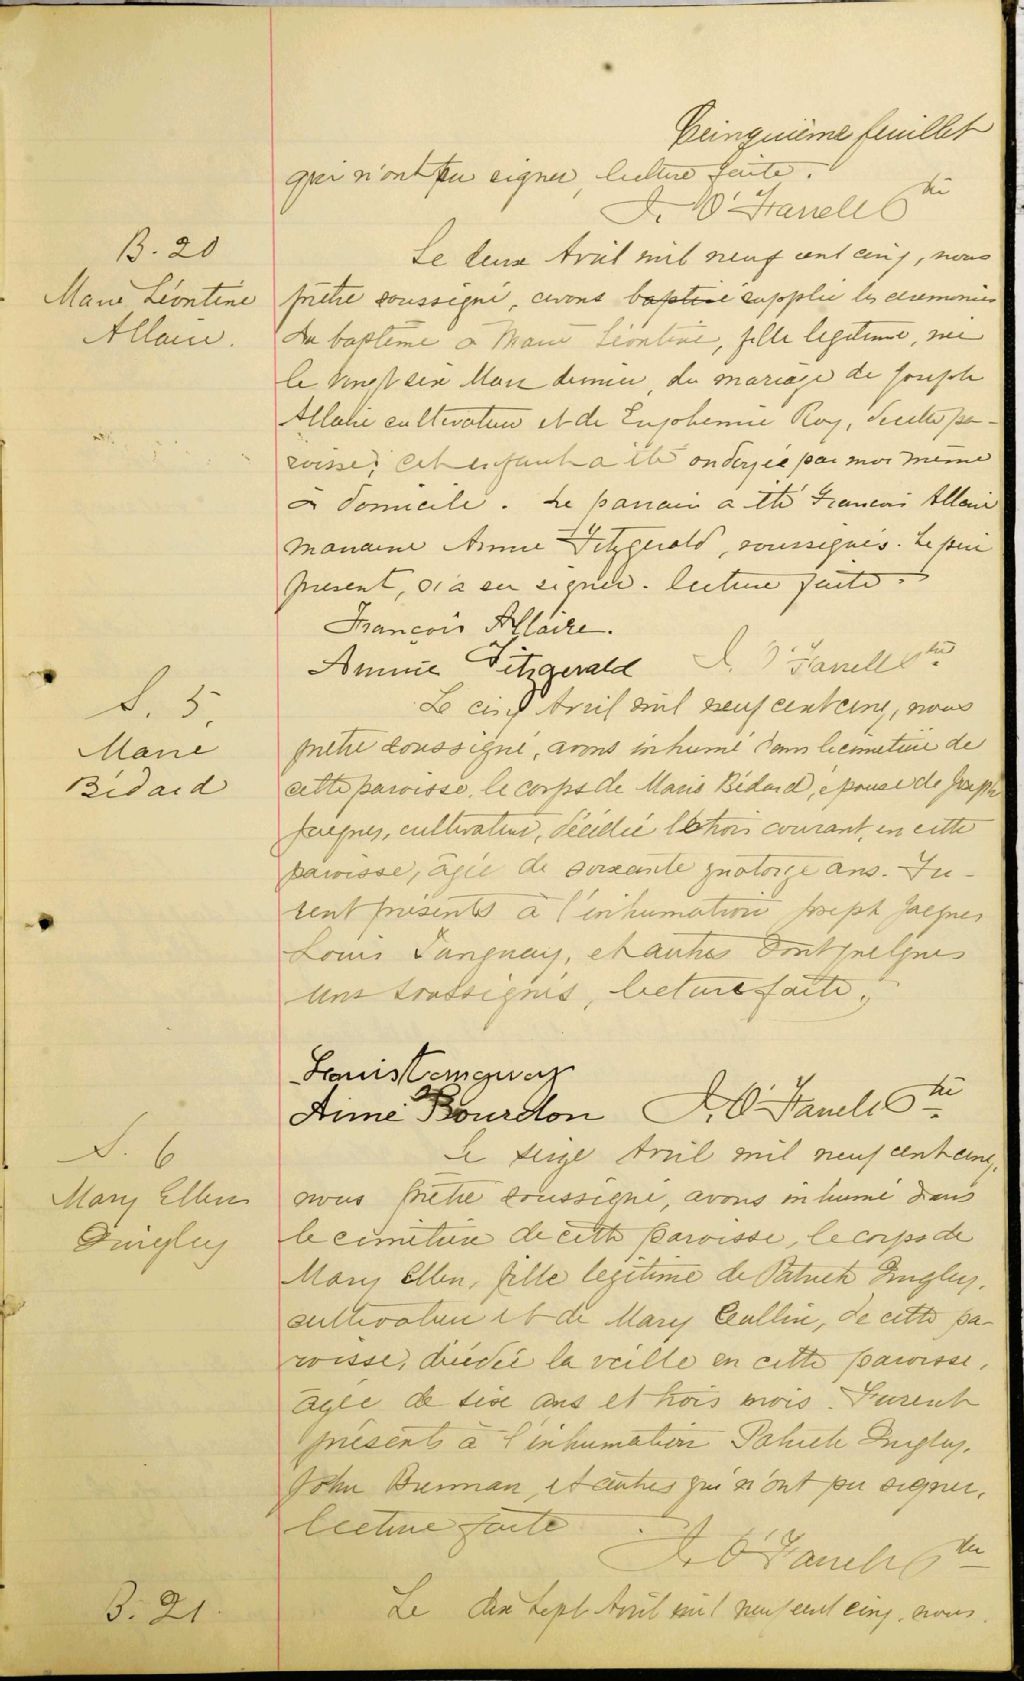 Cinquième feuillet
qui n'ont pu signer, lecture faite.
J. O'Farrell Ptre
B. 20
Marie Léontine
Allaire.
Le deux Avril mil neuf cent cinq, nous
prêtre soussigné, avons baptisé supplié les ceremonies
du baptême à Marie Léontine, fille legitime, née
le vingt six Mars dernier, du mariage de Joseph
Allaire cultivateur et de Euphemie Roy, de cette pa-
roisse; cet enfant a été ondoyée par moi même
à domicile. Le parrain a été François Allaire
marraine Annie Fitzgerald, soussignés. Le père
present, n'a su signer. lecture faite.
François Allaire.
Annie Fitzgerald J. O'Farrell Ptre
S. 5.
Marie
Bédard
Le cinq Avril mil neuf cent cinq, nous
prêtre soussigné, avons inhumé dans le cimetière de
cette paroisse, le corps de Marie Bédard, épouse de Joseph
Jacques, cultivateur, décédée le trois courant, en cette
paroisse, âgée de soixante quatorze ans. Fu-
rent présents à l'inhumation Joseph Jacques
Louis Tanguay, et autres dont quelques
uns soussignés, lecture faite.
Louis Tanguay
Aimé Bourdon J. O'Farrell Ptre
S. 6
Mary Ellen
Quigley
Le seize Avril mil neuf cent cinq,
nous prêtre soussigné, avons inhumé dans
le cimetière de cette paroisse, le corps de
Mary Ellen, fille legitime de Patrick Quigley,
cultivateur et de Mary Cullin, de cette pa-
roisse, décédée la veille en cette paroisse,
âgée de six ans et trois mois. Furent
présents à l'inhumation Patrick Quigley,
John Brennan, et autres qui n'ont pu signer,
lecture faite.
J. O'Farrell Ptre
B. 21.
Le dix sept Avril mil neuf cent cinq, nous